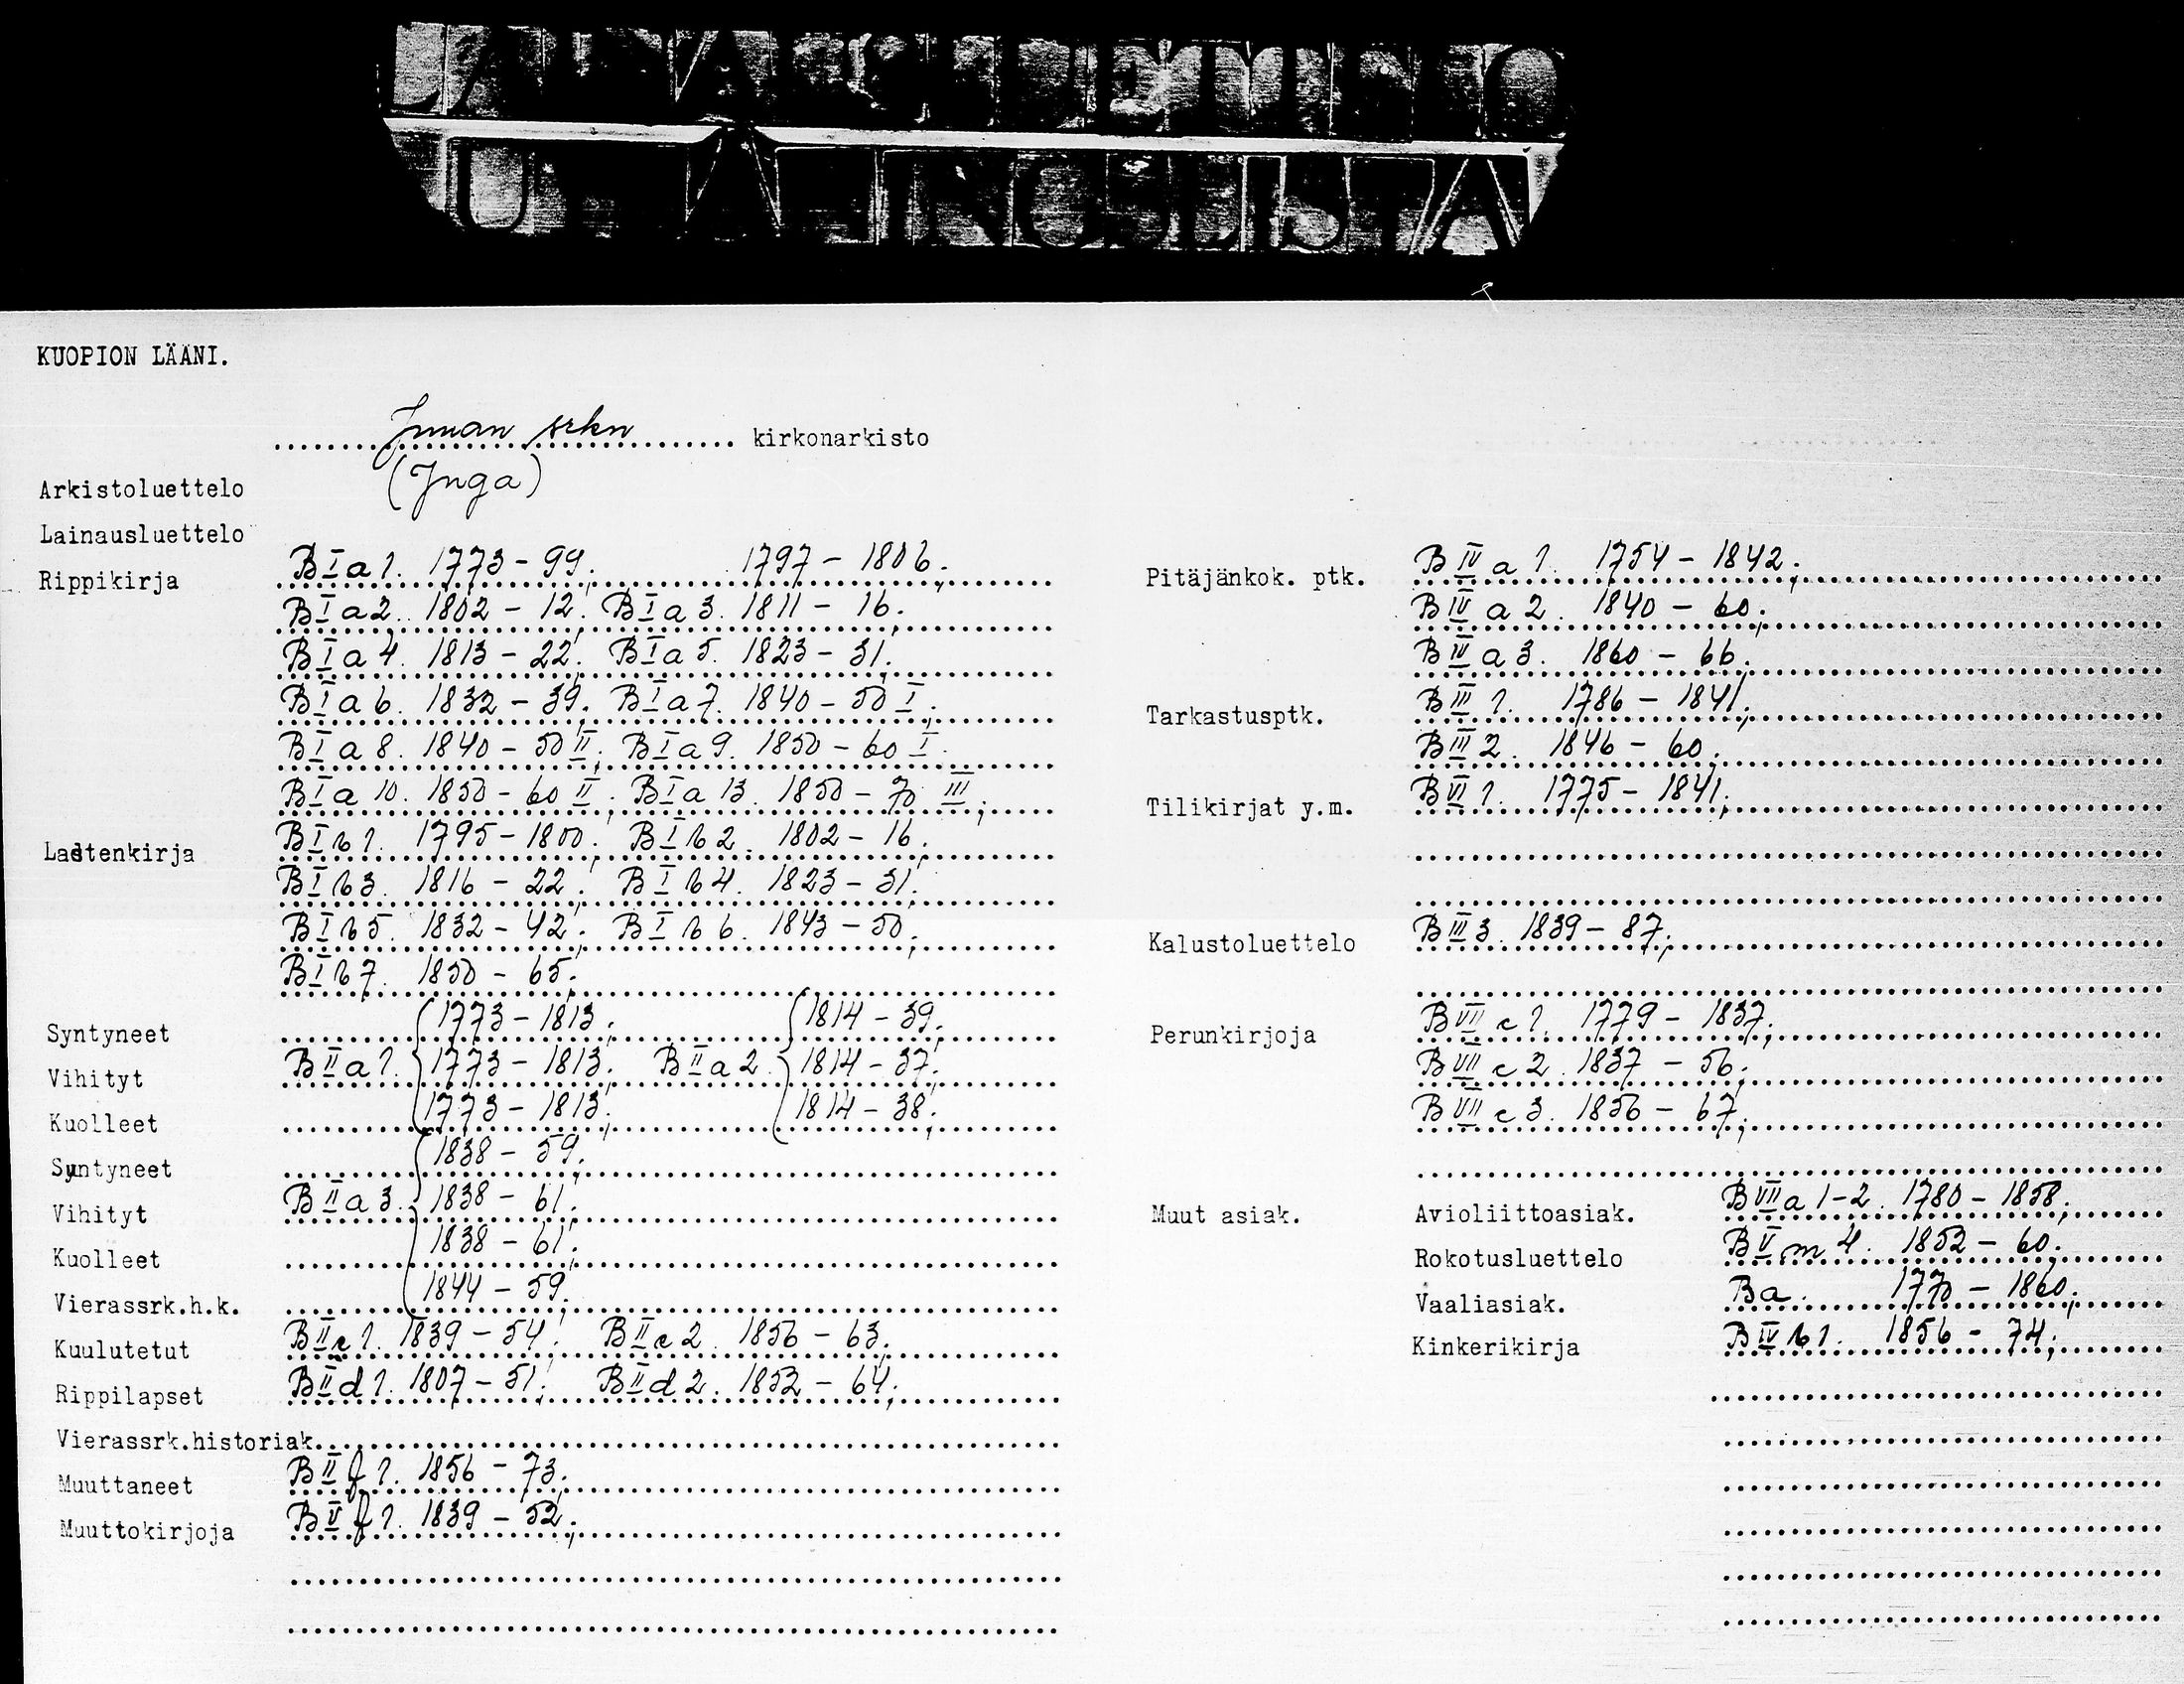 KUOPION LÄÄNI.
Juuan srkn kirkonarkisto
(Juga)
Arkistoluettelo
Lainausluettelo
Rippikirja B I a 1. 1773 - 99. 1797 - 1806.
B I a 2. 1802 - 12. B I a 3. 1811 - 16.
B I a 4. 1813 - 22. B I a 5. 1823 - 31.
B I a 6. 1832 - 39. B I a 7. 1840 - 50 I.
B I a 8. 1840 - 50 II. B I a 9. 1850 - 60 I.
B I a 10. 1850 - 60 II. B I a 13. 1850 - 70 III.
Lastenkirja B I b 1. 1795 - 1800. B I b 2. 1802 - 16.
B I b 3. 1816 - 22. B I b 4. 1823 - 31.
B I b 5. 1832 - 42. B I b 6. 1843 - 50.
B I b 7. 1850 - 65.
Syntyneet 1773 - 1813. 1814 - 39.
Vihityt B II a 1. 1773 - 1813. B II a 2. 1814 - 37.
Kuolleet 1773 - 1813. 1814 - 38.
Syntyneet 1838 - 59.
Vihityt B II a 3. 1838 - 61.
Kuolleet 1838 - 61.
Vierassrk.h.k. 1844 - 59.
Kuulutetut B II c 1. 1839 - 54. B II c 2. 1856 - 63.
Rippilapset B II d 1. 1807 - 51. B II d 2. 1852 - 64.
Vierassrk.historiak.
Muuttaneet B II f 1. 1856 - 73.
Muuttokirjoja B V f 1. 1839 - 52.
Pitäjänkok. ptk. B IV a 1. 1754 - 1842.
B IV a 2. 1840 - 60.
B IV a 3. 1860 - 66.
Tarkastusptk. B III 1. 1786 - 1841.
B III 2. 1846 - 60.
Tilikirjat y.m. B VI 1. 1775 - 1841.
Kalustoluettelo B III 3. 1839 - 87.
Perunkirjoja B VII c 1. 1779 - 1837.
B VII c 2. 1837 - 56.
B VII c 3. 1856 - 67.
Muut asiak. Avioliittoasiak. B VII a 1-2. 1780 - 1858.
Rokotusluettelo B V m 4. 1852 - 60.
Vaaliasiak. Ba. 1770 - 1860.
Kinkerikirja B IV b 1. 1856 - 74.